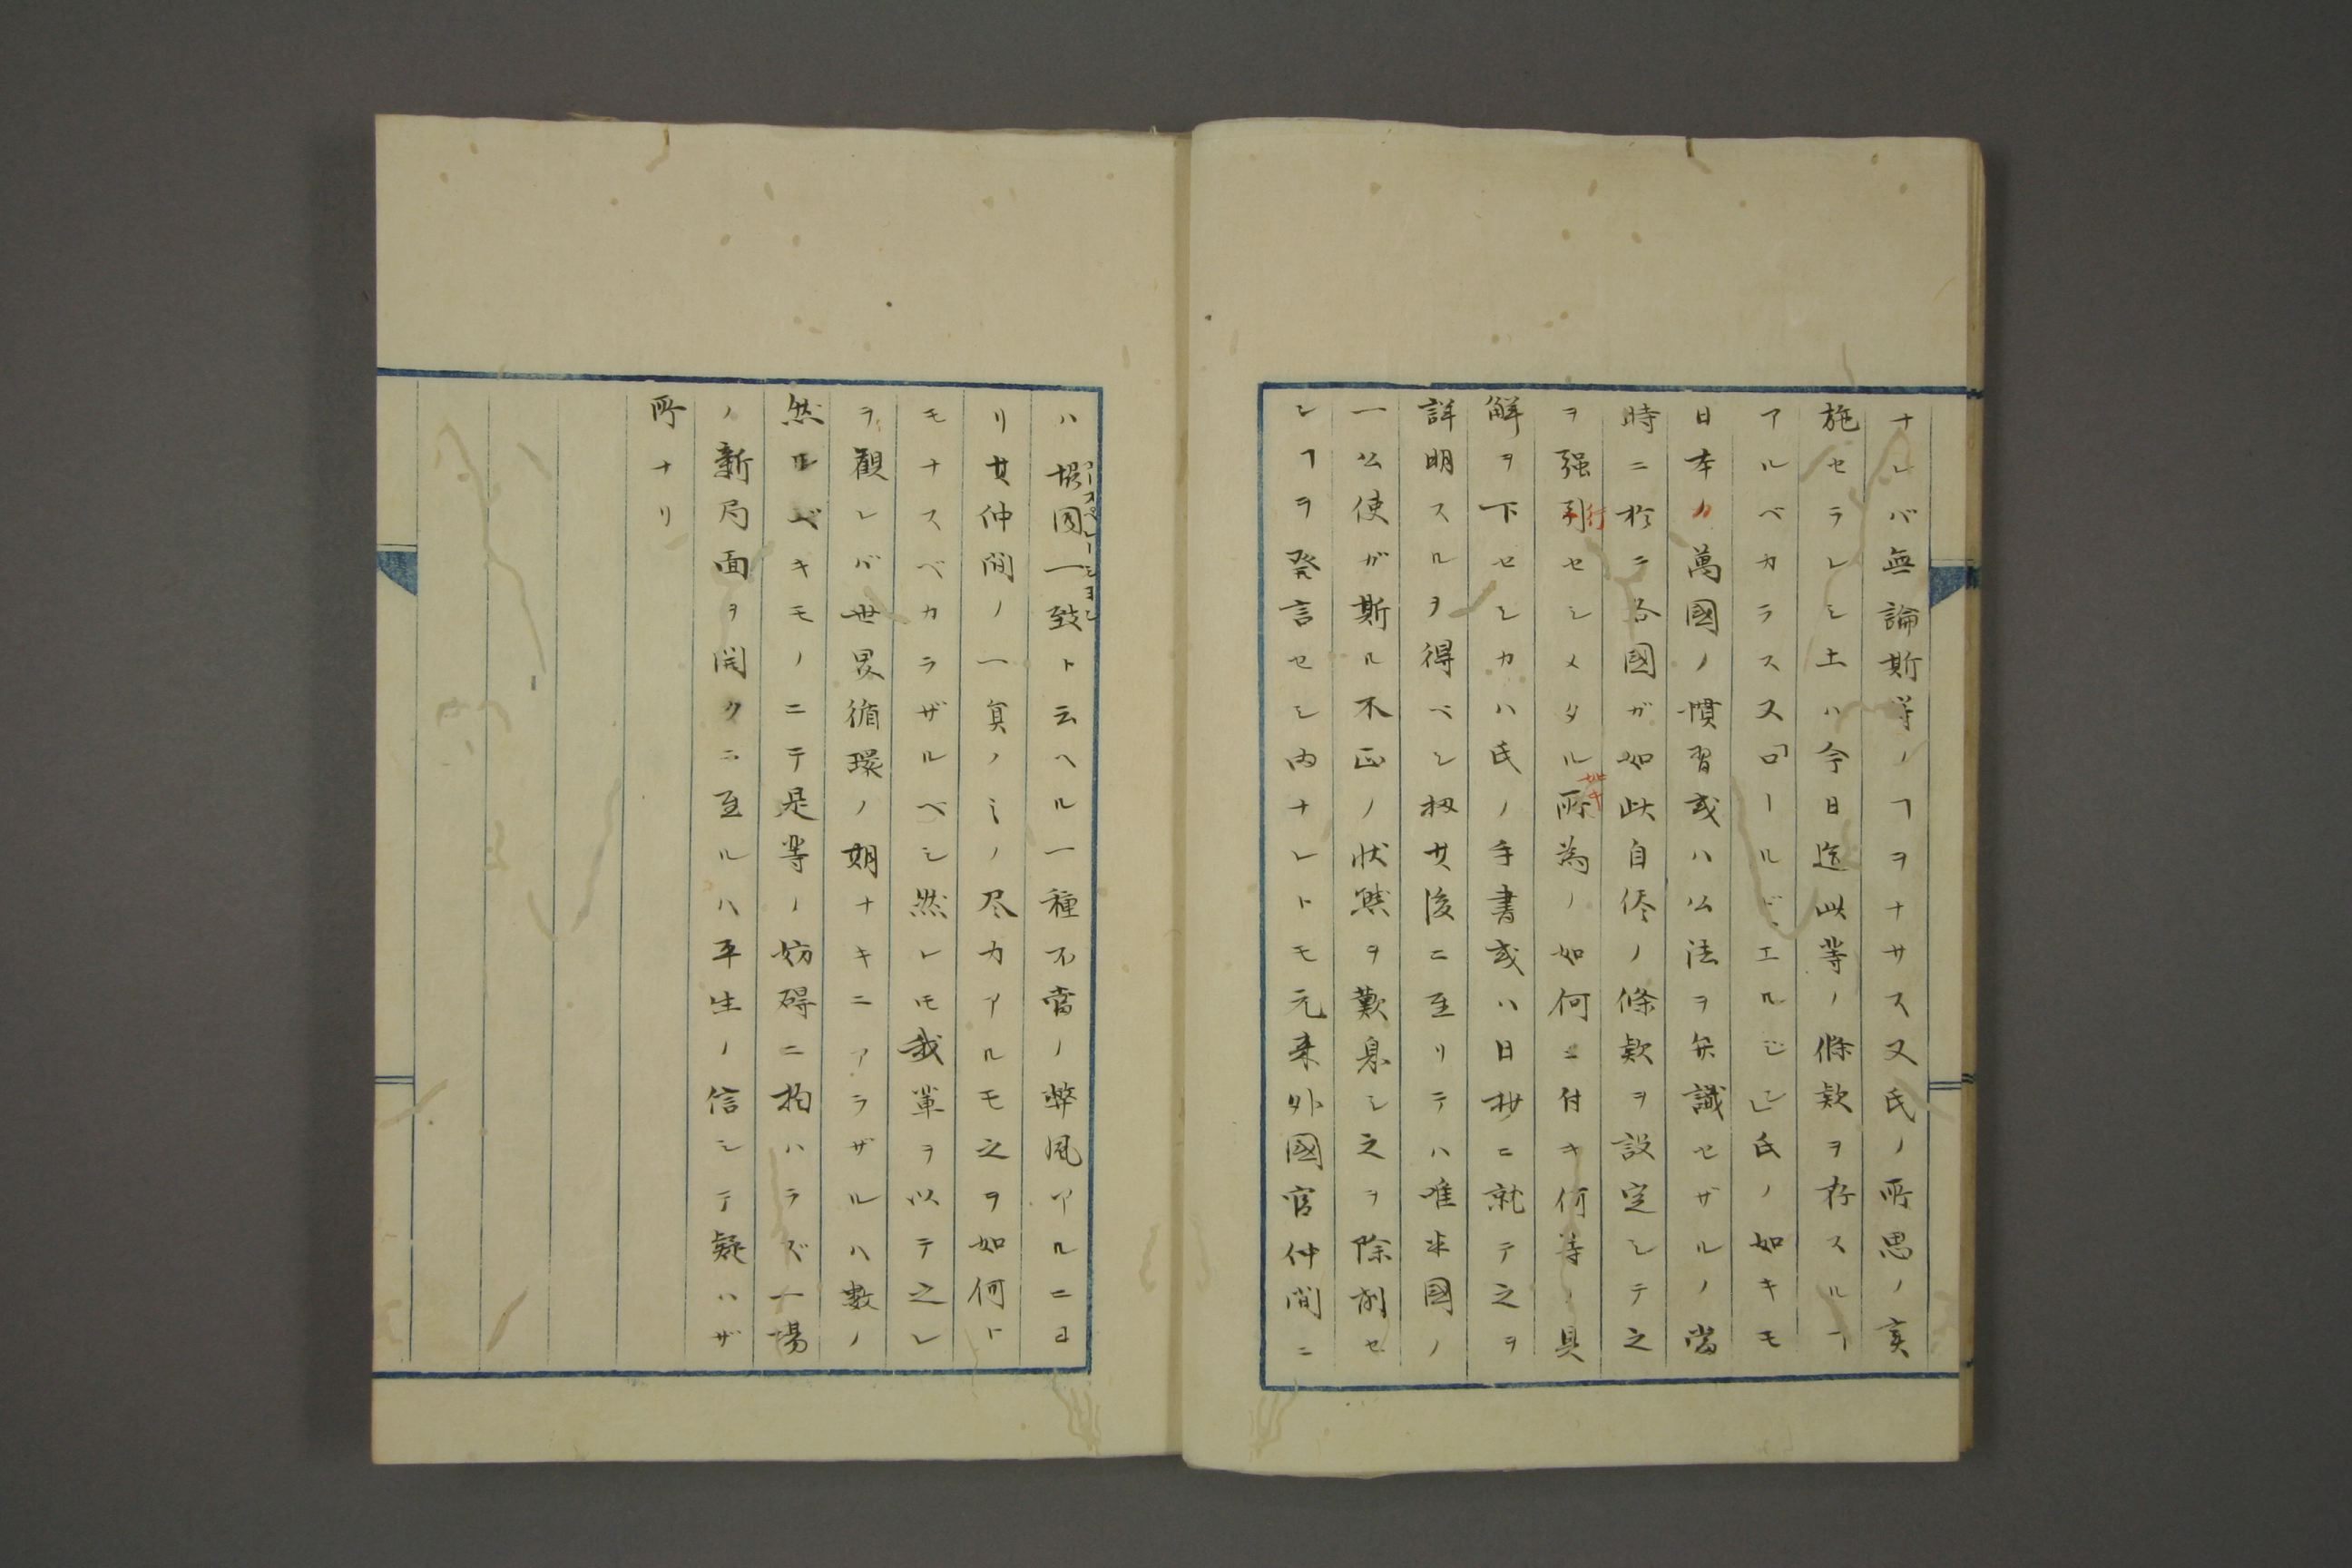 ナレバ無論斯等ノヿヲナサス又氏ノ所思ノ実
施セラレシ土ハ今日迄此等ノ條款ヲ存スルヿ
アルベカラス又「ロールド、エルジン」氏ノ如キモ
日本カ萬國ノ慣習或ハ公法ヲ弁識セザルノ當
時ニ於ニ各國ガ如此自侭ノ條款ヲ設定シテ之
ヲ强行セシメタル如キ所為ノ如何ニ付キ何等ノ具
解ヲ下セシカハ氏ノ手書或ハ日抄ニ就テ之ヲ
詳明スルヲ得ベシ扨其後ニ至リテハ唯米國ノ
一公使ガ斯ル不正ノ状態ヲ歎息シ之ヲ除削セ
シヿヲ発言セシ内ナレトモ元来外國官仲間ニ
ハ協同一致ト云ヘル一種不當ノ弊風アルニヨ
コーオペレーシヨン
リ其仲間ノ一員ノミノ尽力アルモ之ヲ如何ト
モナスベカラザルベシ然レモ我輩ヲ以テ之レ
ヲ観レバ世界循環ノ期ナキニアラザルハ數ノ
然ルベキモノニテ是等ノ妨碍ニ拘ハラズ一場
ノ新局面ヲ開クニ至ルハ平生ノ信シテ疑ハザ
所ナリ